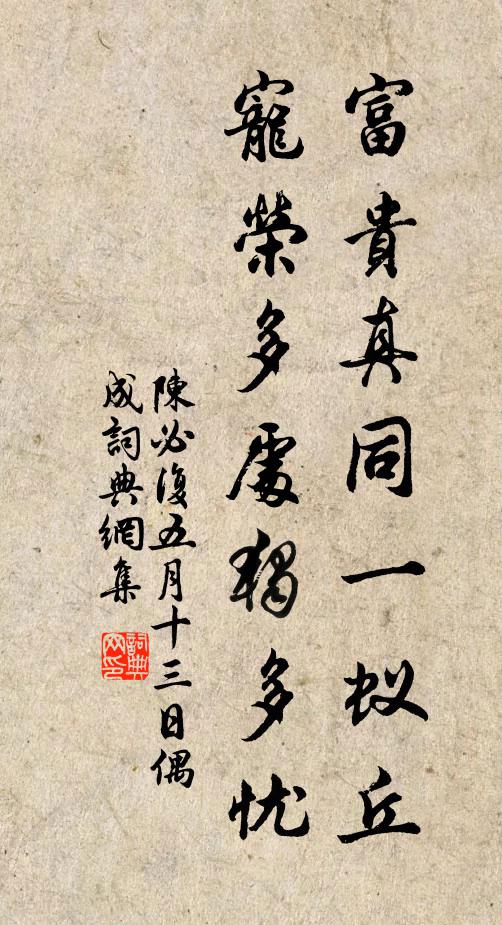 富貴真同一蚁丘
寵榮多處独多忧
陳必復五月十三日偶
成詞典網集
詞典
网印